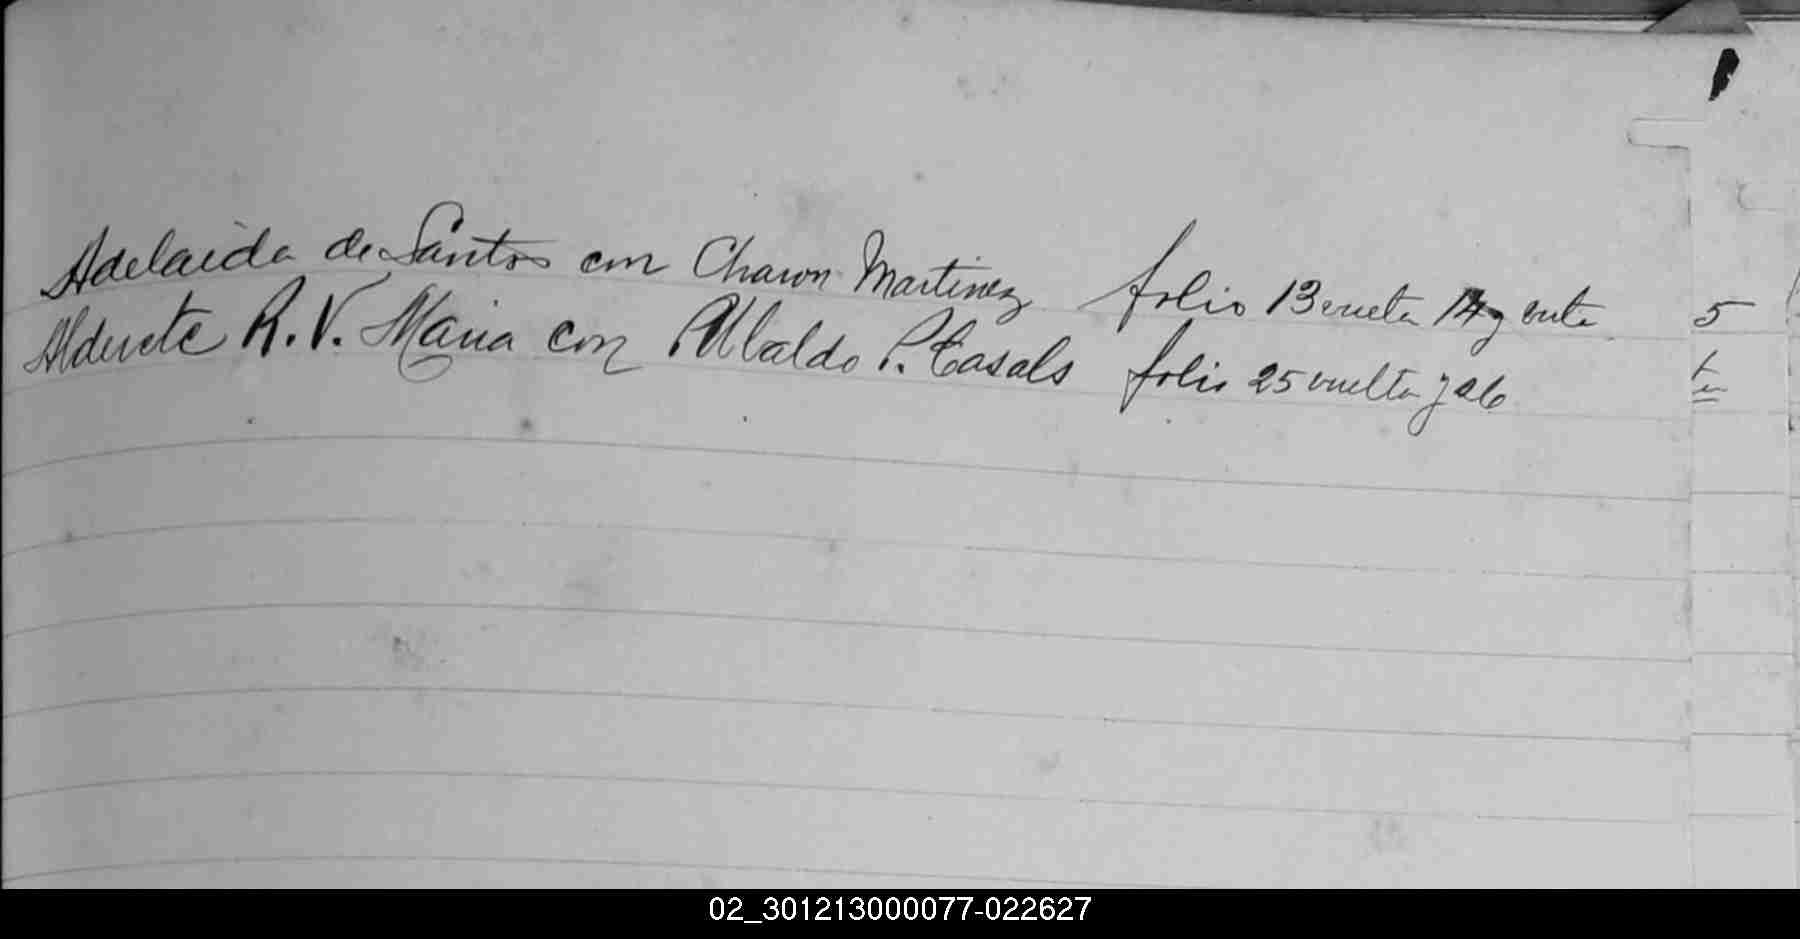 Adelaida de Santos con Charon Martinez folio 13 vuelta 14 y vuelta 5
Alderete R. V. Maria con Ubaldo P. Casals folio 25 vuelta y 26
02_301213000077-022627